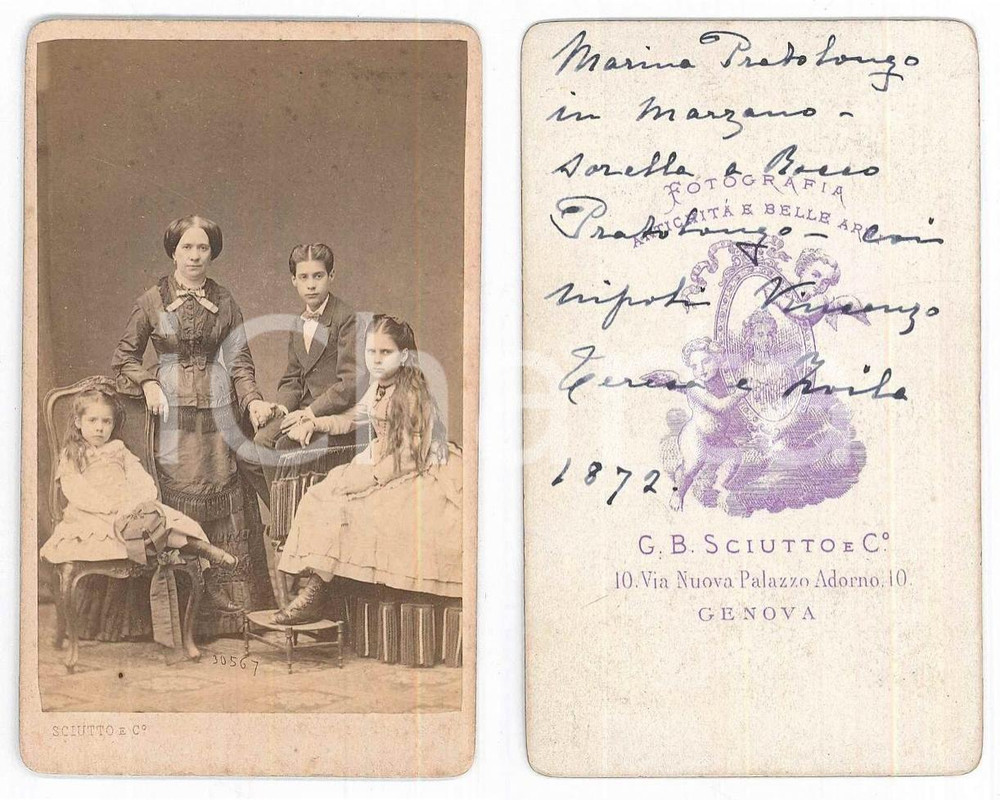 30567
SCIUTTO E Cº
Marina Pratolongo
in Marzano -
sorella a Rocco
FOTOGRAFIA
ANTICHITÁ E BELLE ARTI
Pratolongo - coi
nipoti Vincenzo
Teresa e Zoila
1872.
G. B. SCIUTTO E Cº
10. Via Nuova Palazzo Adorno, 10.
GENOVA